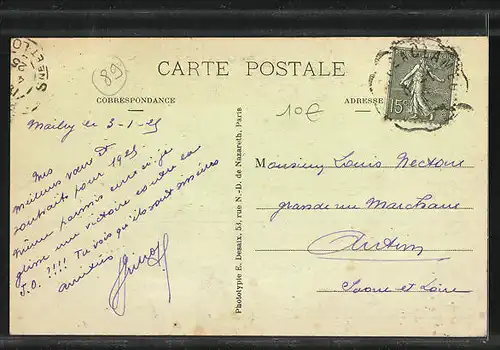 89
CARTE POSTALE
CORRESPONDANCE
10€
ADRESSE
15c
Mailly le 3-1-25
Mes
meilleurs vœux et
souhaits pour 1925
même parmis eux si je
glisse une victoire contre la
J.O. !!!! Tu vois qu'ils sont moins
Phototypie E. Desaix, 53, rue N.-D. de Nazareth, Paris
Monsieur Louis Nectoux
grande rue Marchaux
Autun
Saone et Loire